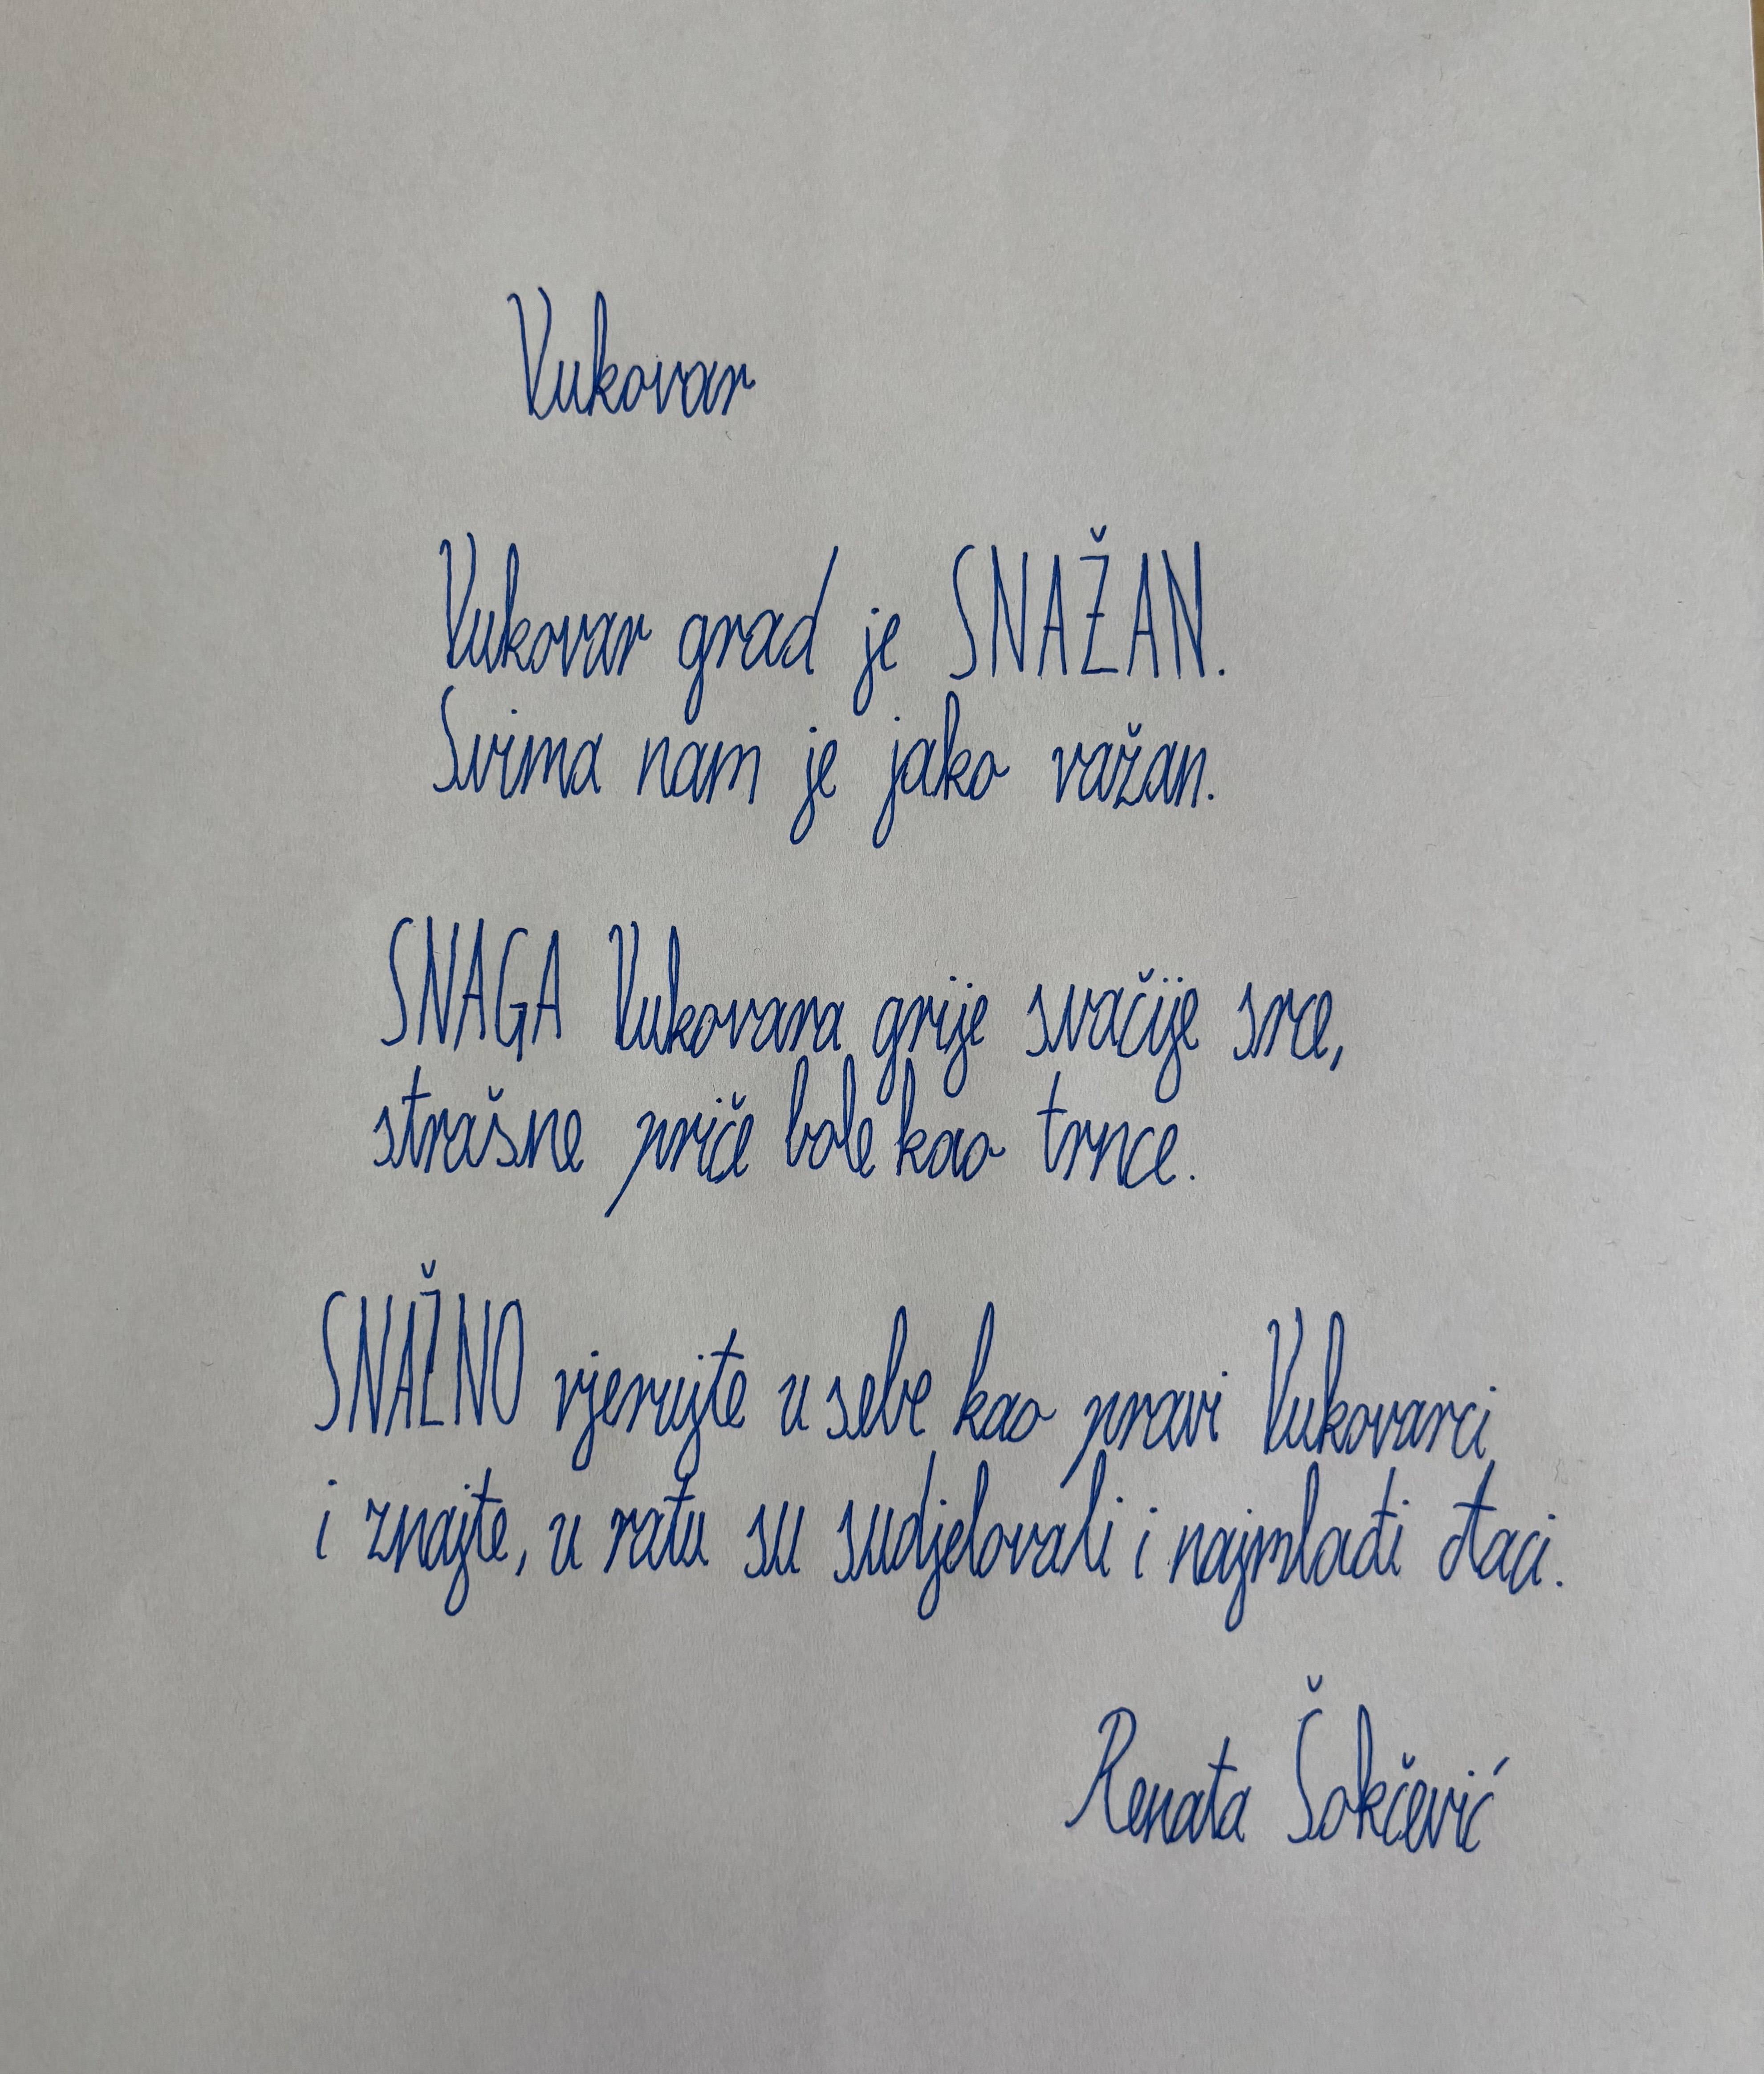 Vukovar
Vukovar grad je SNAŽAN.
Svima nam je jako važan.
SNAGA Vukovara grije svačije srce,
strašne priče bole kao trnce.
SNAŽNO vjerujte u sebe kao pravi Vukovarci
i znajte, u ratu su sudjelovali i najmlađi đaci.
Renata Šokčević